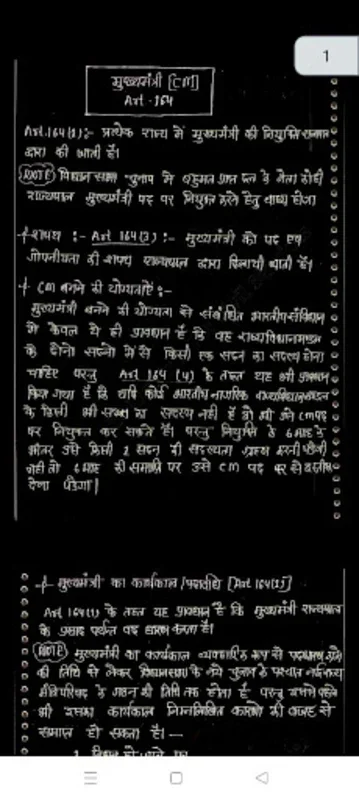 1
मुख्यमंत्री [CM]
Art - 164
Art. 164(1):- प्रत्येक राज्य में मुख्यमंत्री की नियुक्ति राज्यपाल
द्वारा की जाती है।
(NOTE) विधान सभा चुनाव में बहुमत प्राप्त दल के नेता को ही
राज्यपाल मुख्यमंत्री पद पर नियुक्त करने हेतु बाध्य होगा
शपथ :- Art 164(3) :- मुख्यमंत्री को पद एवं
गोपनीयता की शपथ राज्यपाल द्वारा दिलायी जाती है।
CM बनने की योग्यताएं:-
मुख्यमंत्री बनने की योग्यता से संबंधित भारतीय संविधान
में केवल ये ही प्रावधान है कि वह राज्य विधानमण्डल
के दोनो सदनो में से किसी एक सदन का सदस्य होना
चाहिए परन्तु Art 164 (4) के तहत यह भी प्रावधान
किया गया है कि यदि कोई भारतीय नागरिक राज्यविधानमण्डल
के किसी भी सदन का सदस्य नही है तो भी उसे CM पद
पर नियुक्त कर सकते है। परन्तु नियुक्ति के 6 माह के
भीतर उसे किसी 1 सदन की सदस्यता ग्रहण करनी होगी
नही तो 6 माह की समाप्ति पर उसे CM पद पर से
देना पडेगा।
मुख्यमंत्री का कार्यकाल / पदावधि [Art 164(1)]
Art 164(1) के तहत यह प्रावधान है कि मुख्यमंत्री राज्यपाल
के प्रसाद पर्यन्त पद धारण करता है।
(NOTE) मुख्यमंत्री का कार्यकाल व्यवहारिक रूप से पदग्रहण करने
की तिथि से लेकर विधानसभा के नये चुनाव के पश्चात
मंत्रिपरिषद के गठन की तिथि तक होता है परन्तु इससे पहले
भी उसका कार्यकाल निम्नलिखित कारणो की वजह से
समाप्त हो सकता है। —
1.